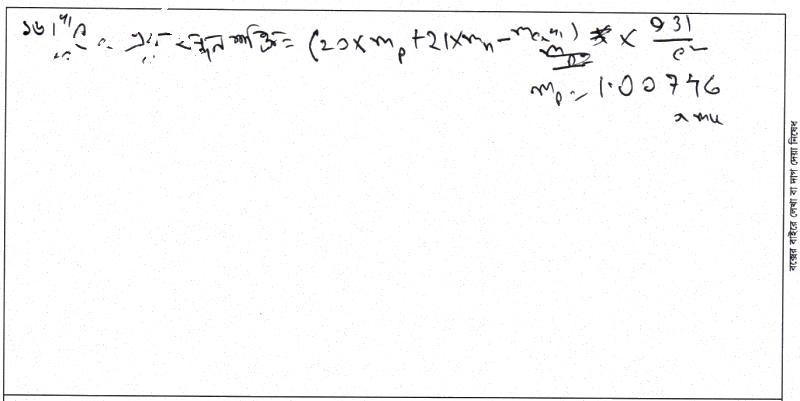 ১৬। এর বন্ধন শক্তি = (20 x m_p + 21 x m_n - m_Ca41) x 931/c²
m_p = 1.00746
amu
বক্সের বাইরে লেখা বা দাগ দেয়া নিষেধ